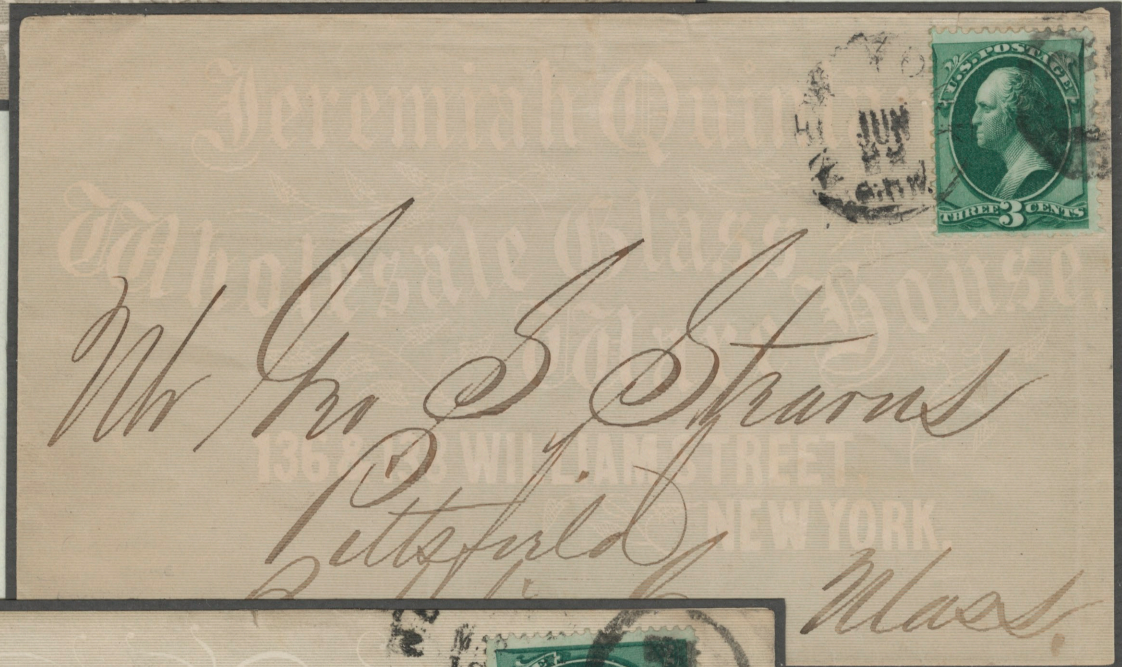 Jeremiah
Wholesale Glass
Ware House,
136 & 138 WILLIAM STREET
NEW YORK.
NEW YO
JUN
U.S. POSTAGE
THREE 3 CENTS
Mr Jno S Stearns
Pittsfield
Mass.